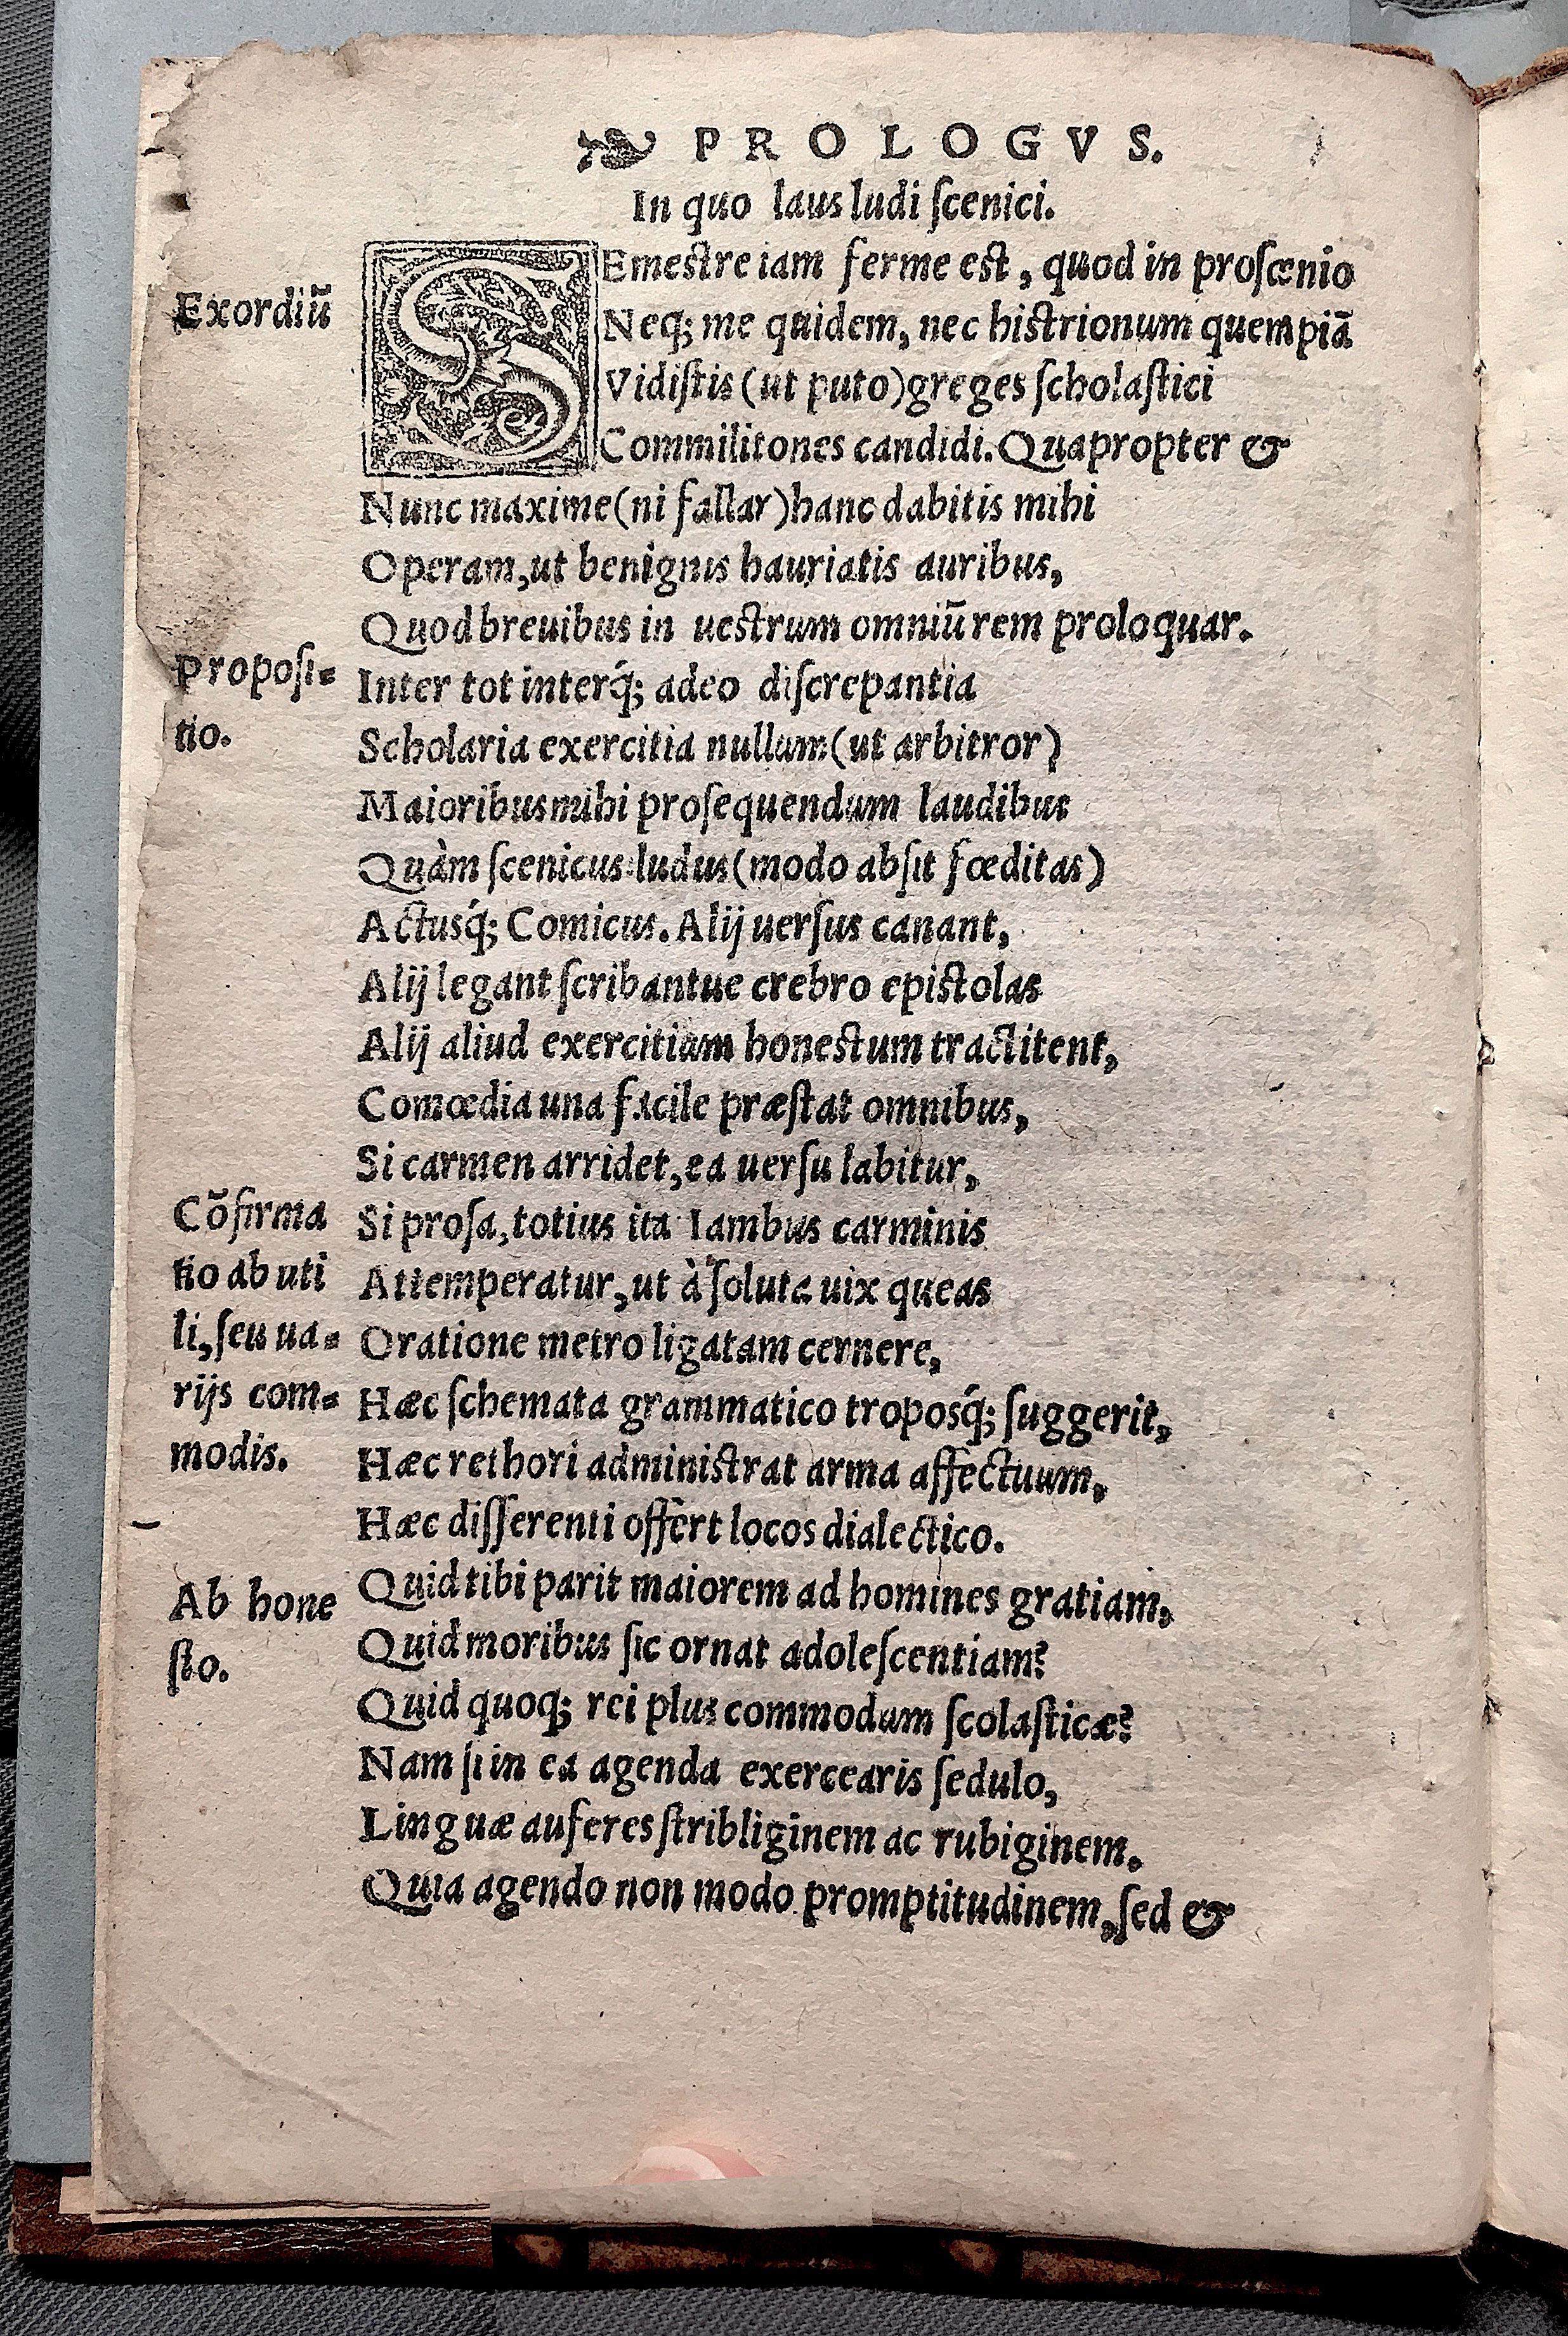 ❧ PROLOGVS.
In quo laus ludi ſcenici.
Exordiū
SEmestre iam ferme est, quod in proſcœnio
Neq; me quidem, nec histrionum quempiā
Vidiſtis (ut puto) greges ſcholaſtici
Commilitones candidi. Quapropter &
Nunc maxime (ni fallar) hanc dabitis mihi
Operam, ut benignis hauriatis auribus,
Quod breuibus in uestrum omniū rem proloquar.
Propoſi-
tio.
Inter tot interq́; adeo diſcrepantia
Scholaria exercitia nullum (ut arbitror)
Maioribus mihi proſequendum laudibus
Quàm ſcenicus ludus (modo abſit fœditas)
Actusq́; Comicus. Alij uerſus canant,
Alij legant ſcribantue crebro epistolas
Alij aliud exercitium honestum tractitent,
Comœdia una facile præſtat omnibus,
Si carmen arridet, ea uerſu labitur,
Cōfirma
tio ab uti
li, ſeu ua-
rijs com-
modis.
Si proſa, totius ita Iambus carminis
Attemperatur, ut à ſoluta uix queas
Oratione metro ligatam cernere,
Hæc ſchemata grammatico troposq́; ſuggerit,
Hæc rethori administrat arma affectuum,
Hæc diſſerenti offert locos dialectico.
Ab hone
ſto.
Quid tibi parit maiorem ad homines gratiam,
Quid moribus ſic ornat adoleſcentiam?
Quid quoq; rei plus commodum ſcolaſticæ?
Nam ſi in ea agenda exercearis ſedulo,
Linguæ auferes ſtribliginem ac rubiginem.
Quia agendo non modo promptitudinem, ſed &